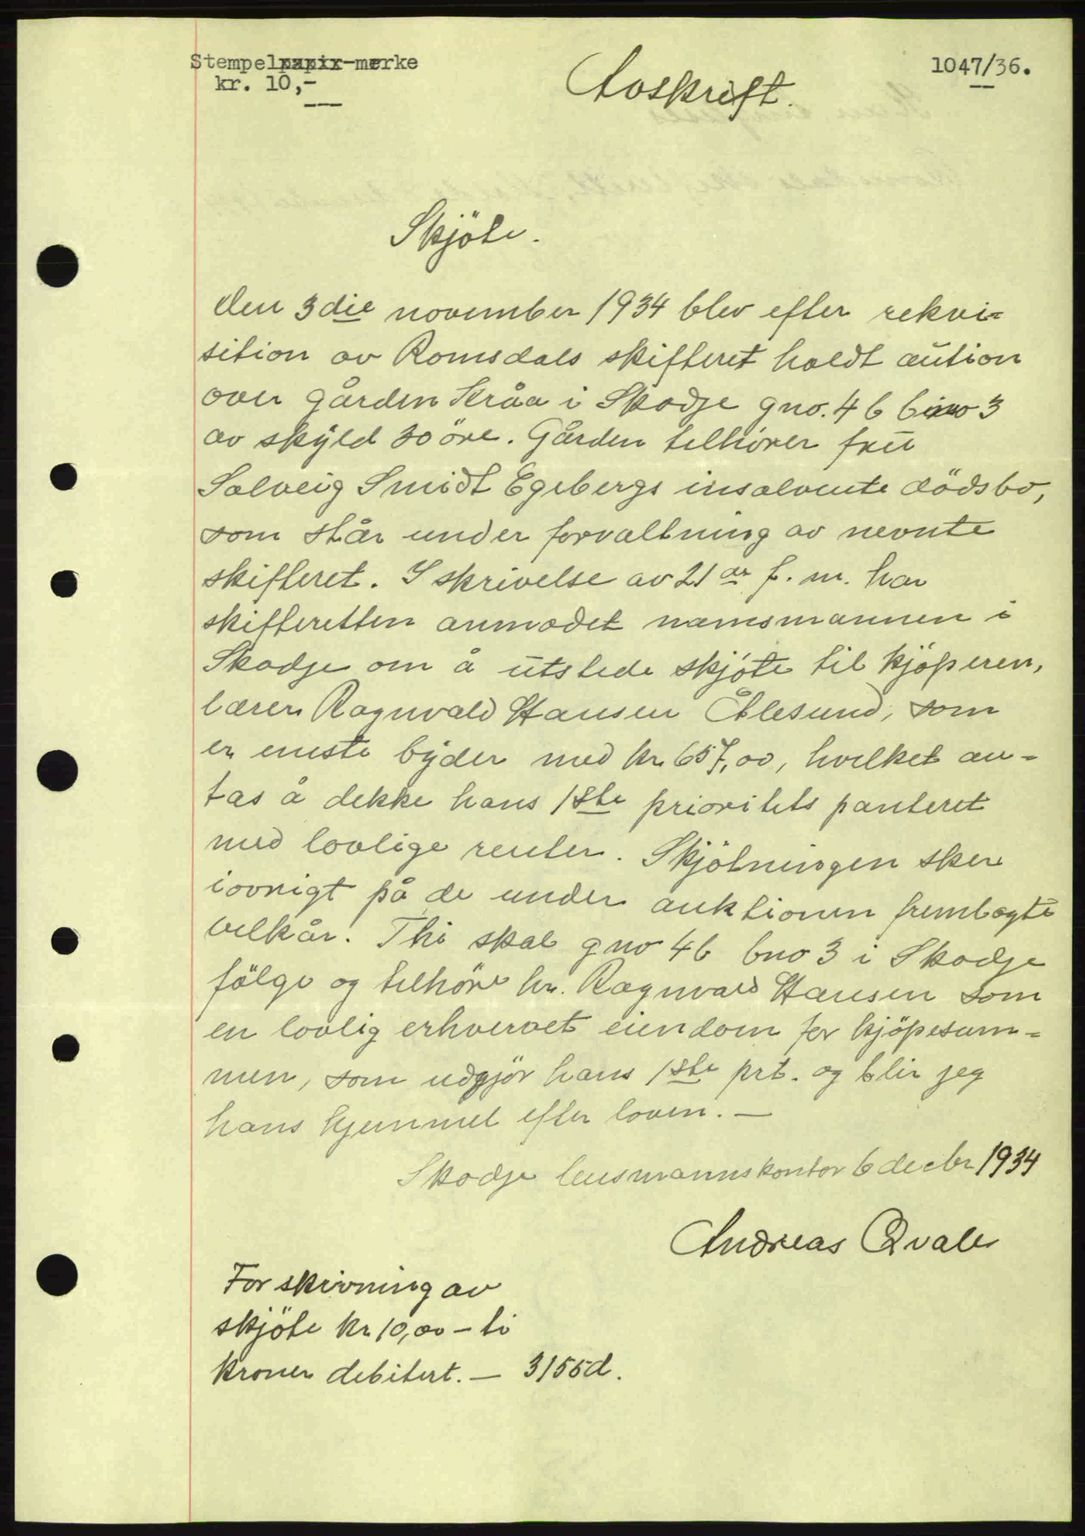 Stempelpapir-merke
kr. 10,-
1047/36.
Avskrift.
Skjöte.
Den 3die november 1934 blev efter rekvi=
sition av Romsdals skifteret holdt aution
over gården Kråa i Skodje gno. 46 bno 3
av skyld 30 öre. Gården tilhörer fru
Solveig Smidt Egebergs insolvente dödsbo,
som står under forvaltning av nevnte
skifteret. I skrivelse av 21 f. m. har
skifteretten anmodet namsmannen i
Skodje om å utstede skjöte til kjöperen,
lærer Ragnvald Hansen Ålesund, som
er eneste byder med kr. 657,00, hvilket an=
tas å dekke hans 1ste prioritets panteret
med lovlige renter. Skjötningen sker
iövrigt på de under auktionen frembagte
vilkår. Thi skal gno 46 bno 3 i Skodje
fölge og tilhöre hr. Ragnvald Hansen som
en lovlig erhvervet eiendom for kjöpesum=
men, som udgjör hans 1ste prt. og blir jeg
hans hjemmel efter loven. —
Skodje lensmannskontor 6 decbr 1934
Andreas Qvale
For skrivning av
skjöte kr 10,00 – ti
kroner debitert. — 3155d.